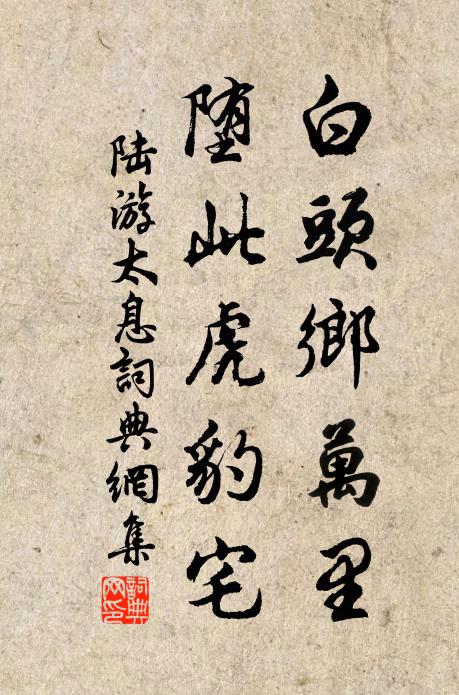 白頭鄉萬里
堕此虎豹宅
陆游太息詞典網集
詞典
网印